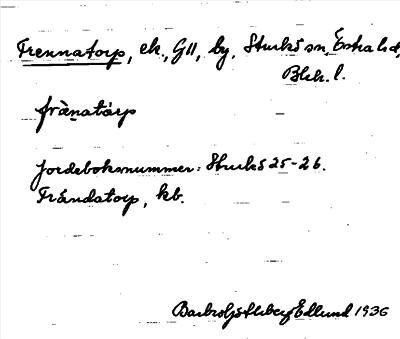 Trennatorp, ek., G11, by, Sturkö sn, Östra hd,
Blek. l.
frànatårp
Jordeboksnummer: Sturkö 25-26.
Frändatorp, kb.
Edlund 1936